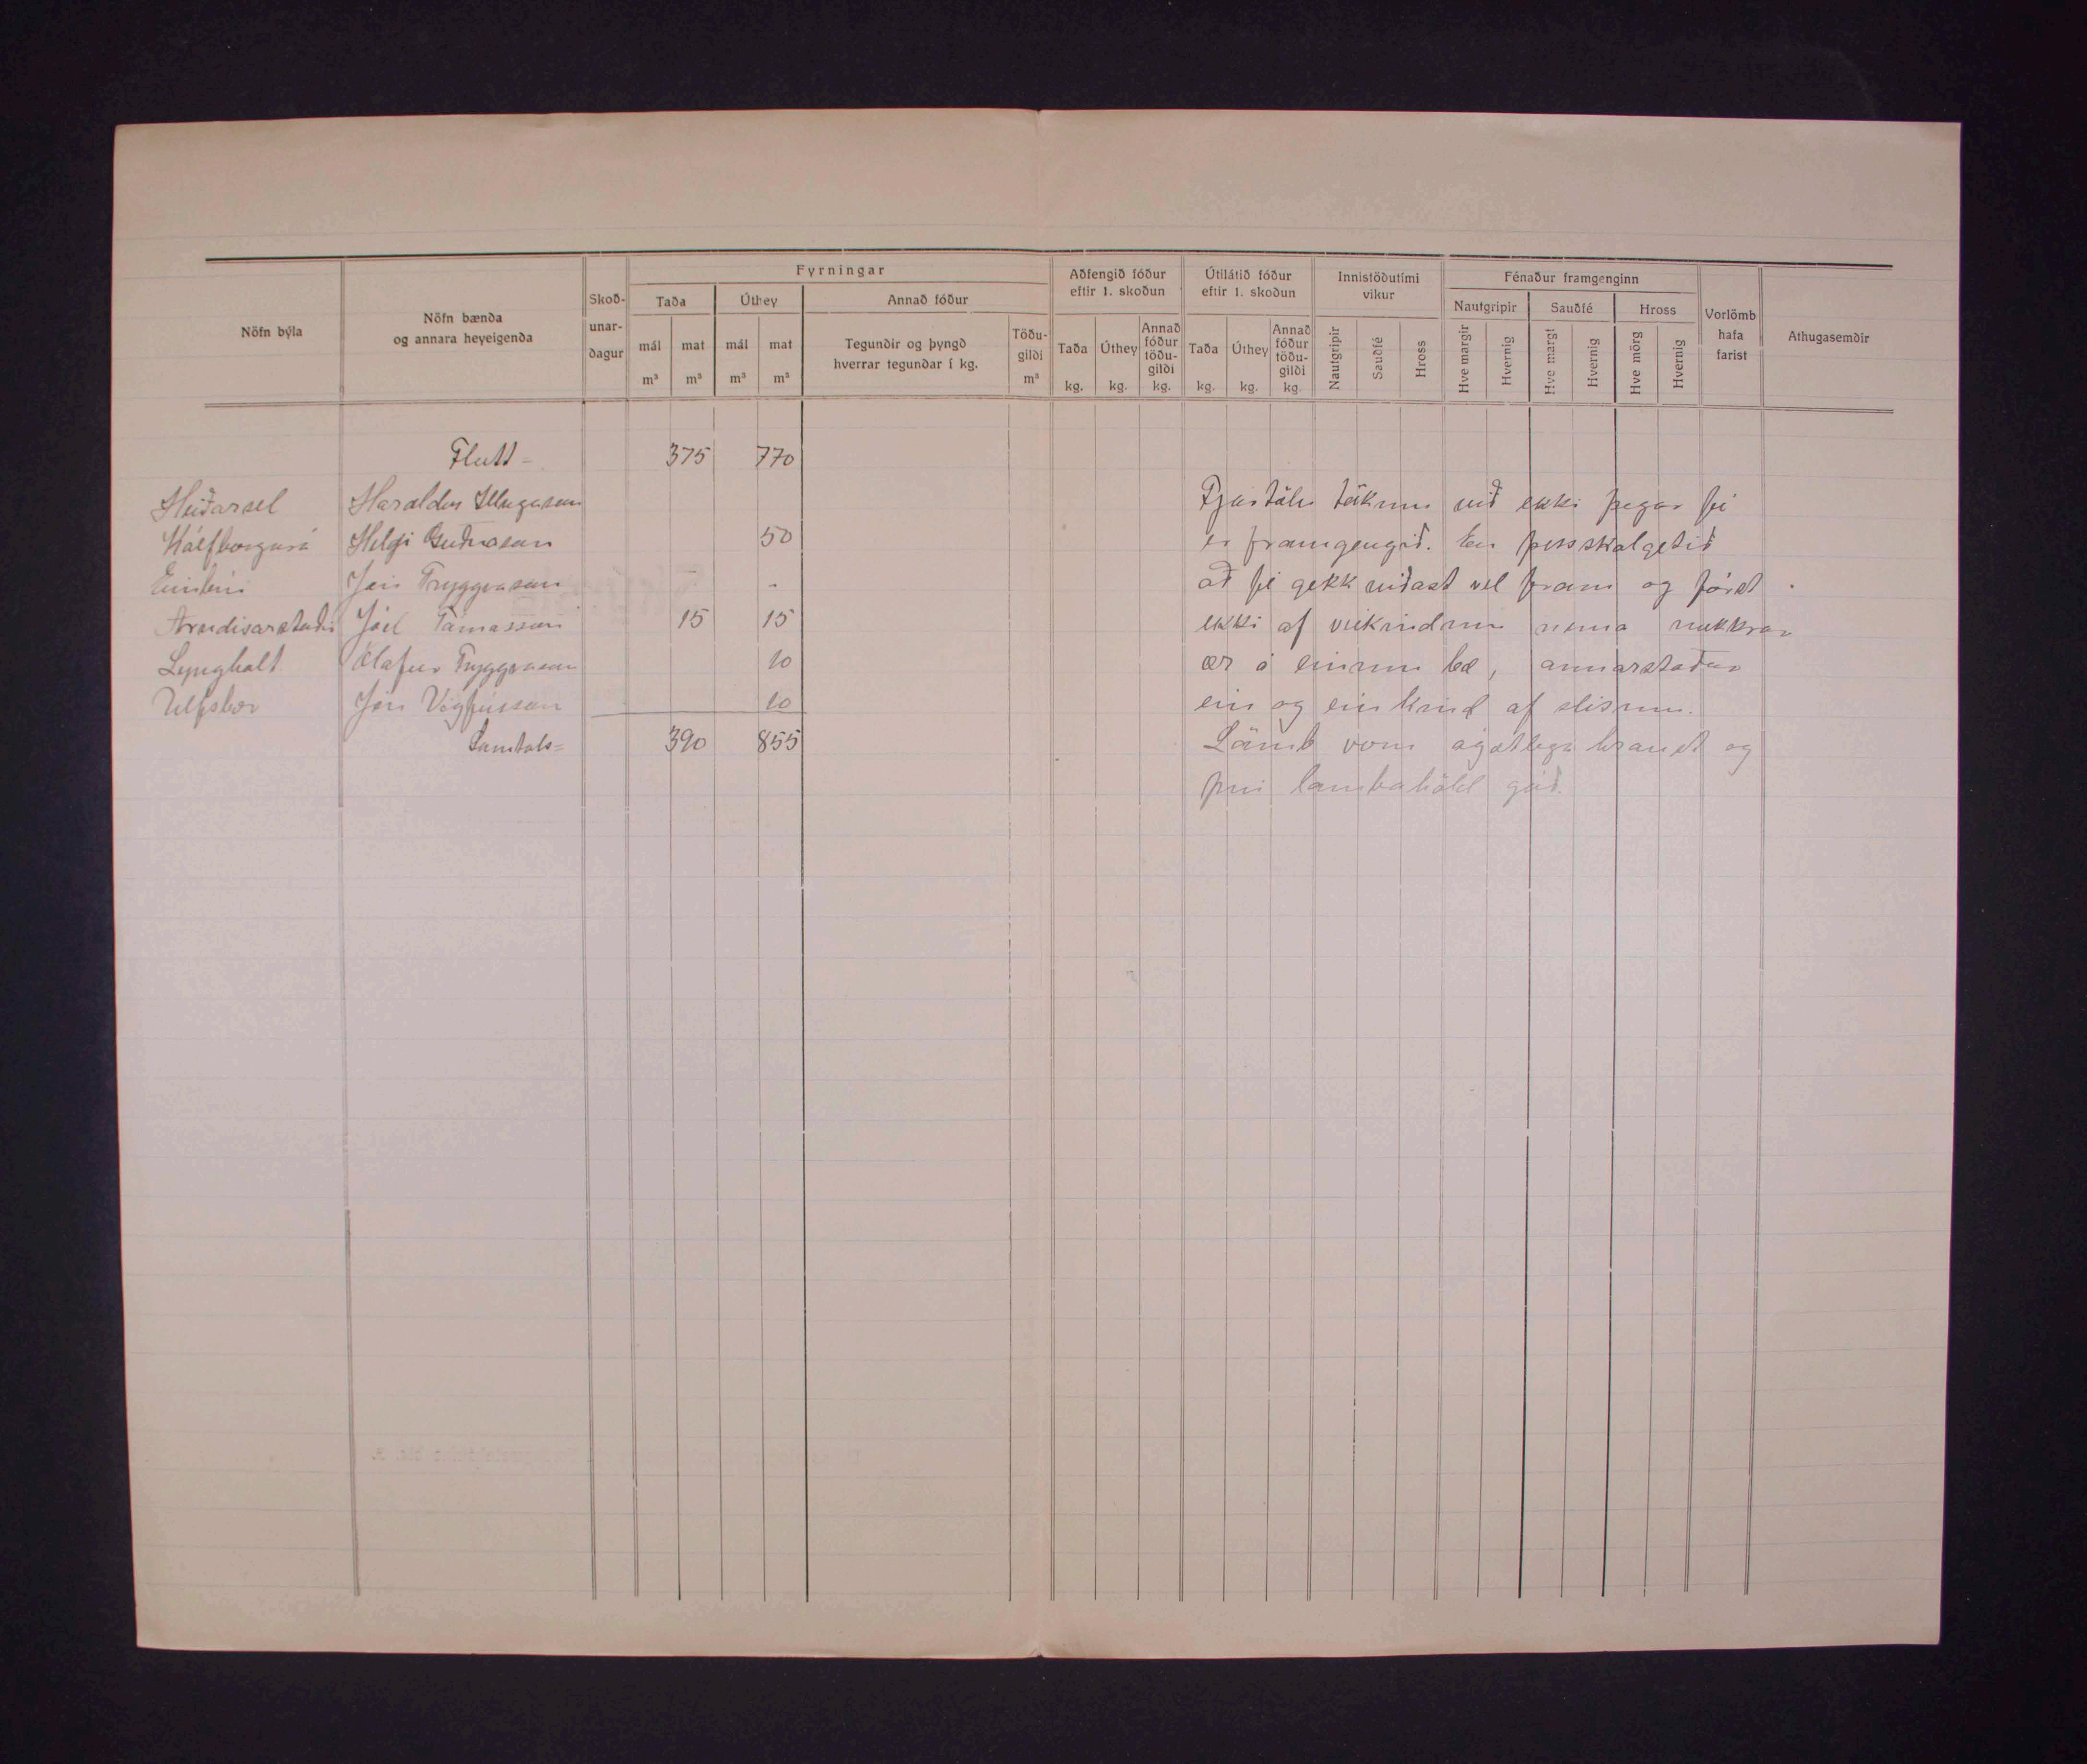 Fyrningar
Aðfengið fóður eftir 1. skoðun
Útilátið fóður eftir 1. skoðun
Innistöðutími vikur
Fénaður framgenginn
Nöfn býla
Nöfn bænda og annara heyeigenda
Skoð-unar-dagur
Taða
Úthey
Annað fóður
Nautgripir
Sauðfé
Hross
Vorlömb hafa farist
Athugasemdir
mál m³ mat m³ mál m³ mat m³
Tegundir og þyngd hverrar tegundar í kg.
Töðu-gildi m³
Taða kg. Úthey kg. Annað fóður töðu-gildi kg.
Taða kg. Úthey kg. Annað fóður töðu-gildi kg.
Nautgripir Sauðfé Hross
Hve margir Hvernig Hve margt Hvernig Hve mörg Hvernig
Flutt = 375 770
Heiðarsel Haraldur Illugason Fjártölu tökum við ekki þegar fé
Kálfborgará Helgi Guðnason 50 er framgengið. En þess skal getið
Einbúi Jón Tryggvason - að fé gekk víðast vel fram og fórst
Arndísarstaðir Jóel Tómasson 15 15 ekki af veikindum nema nokkrar
Lyngholt Ólafur Tryggvason 10 ær á einum bæ, annarstaðar
Úlfsbær Jón Vigfússon 10 ein og ein kind af slisum.
Samtals = 390 855 Lömb voru ágætlega hraust og
því lambahöld góð.